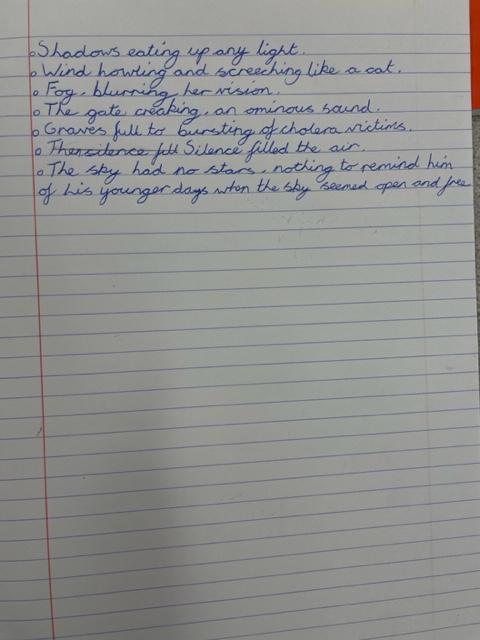 Shadows eating up any light.
Wind howling and screeching like a cat.
Fog, blurring her vision.
The gate creaking, an ominous sound.
Graves full to bursting of cholera victims.
The silence fell Silence filled the air.
The sky had no stars, nothing to remind him
of his younger days when the sky seemed open and free